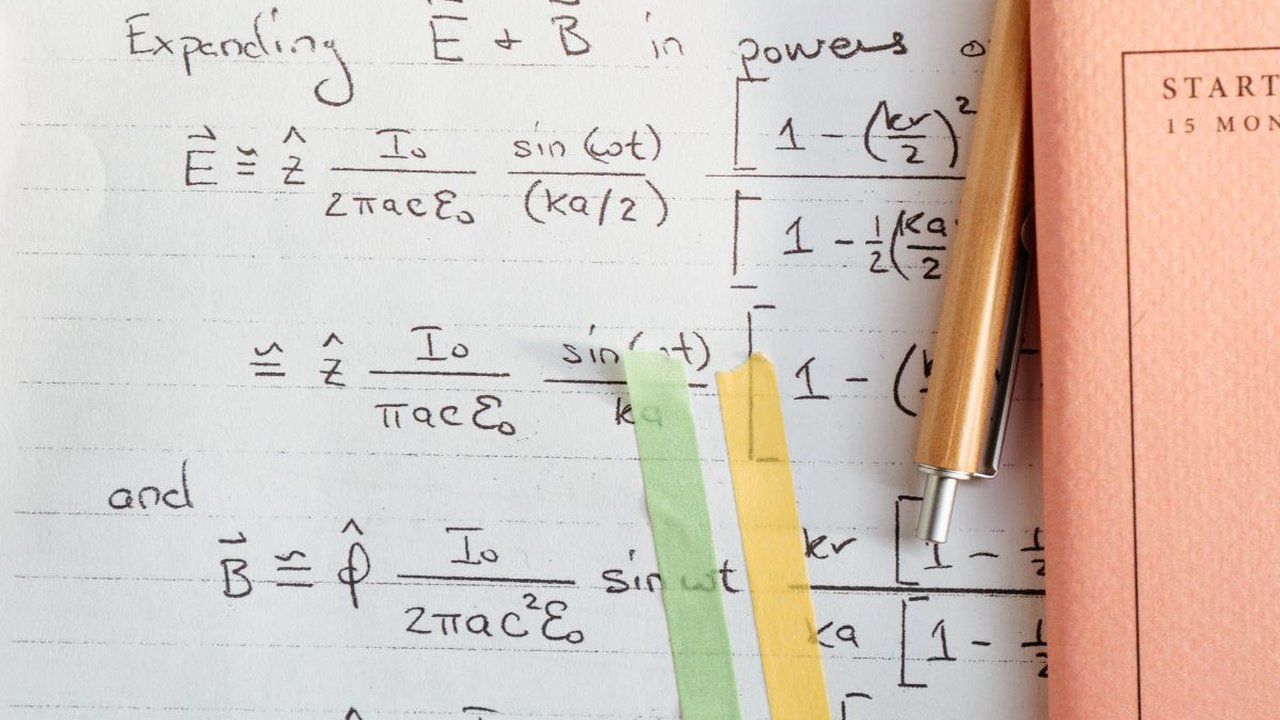 Expanding E⃗ + B⃗ in powers
E⃗ ≅ ẑ I₀/(2πacε₀) sin(ωt)/(ka/2) [1 - (kr/2)²/[1 - ½(ka/2
≅ ẑ I₀/(πacε₀) sin(ωt)/ka [1 - (
and
B⃗ ≅ φ̂ I₀/(2πac²ε₀) sin ωt kr [1 - ½/ka [1 - ½
START
15 MON